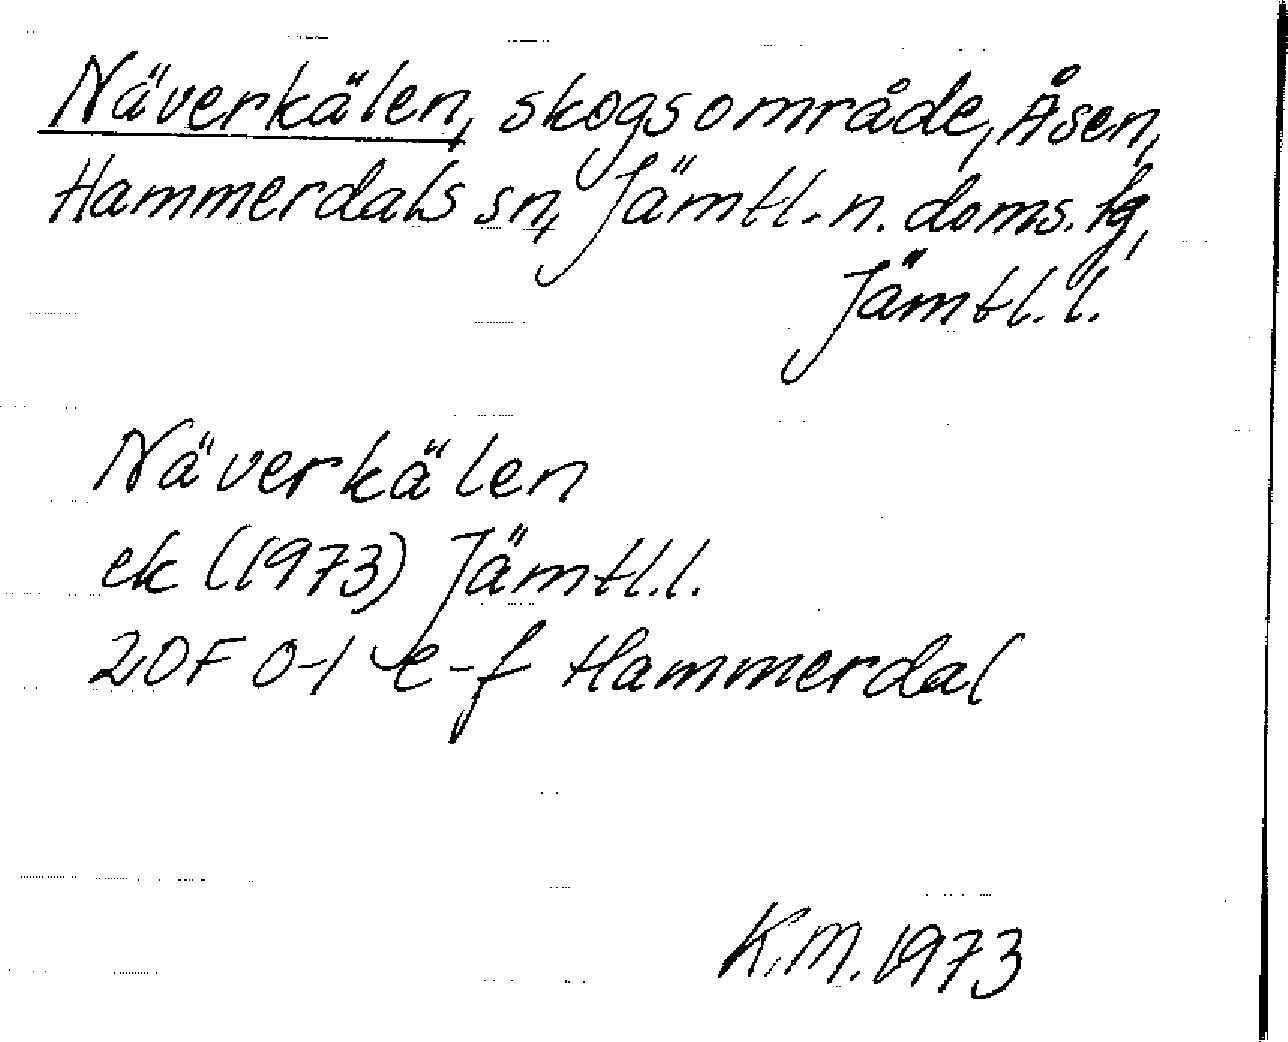 Näverkälen, skogsområde, Åsen,
Hammerdals sn, Jämtl. n. doms. tg,
Jämtl. l.
Näverkälen
ek (1973) Jämtl. l.
20F 0-1 e-f Hammerdal
K.M. 1973